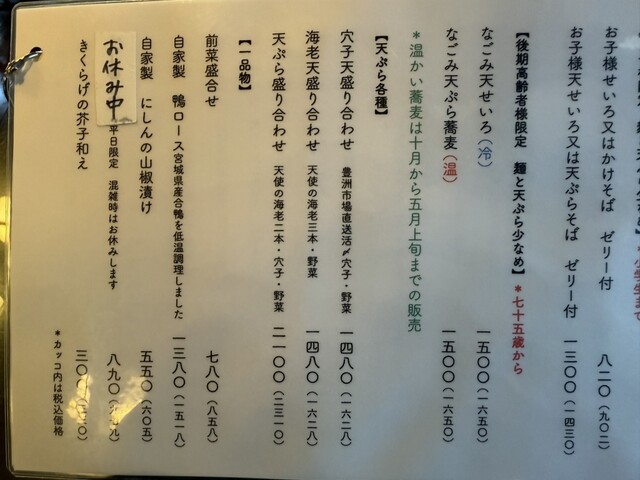 お子様せいろ又はかけそば ゼリー付 八二〇(九〇二)
お子様天せいろ又は天ぷらそば ゼリー付 一三〇〇(一四三〇)
【後期高齢者様限定 麺と天ぷら少なめ】*七十五歳から
なごみ天せいろ(冷) 一五〇〇(一六五〇)
なごみ天ぷら蕎麦(温) 一五〇〇(一六五〇)
*温かい蕎麦は十月から五月上旬までの販売
【天ぷら各種】
穴子天盛り合わせ 豊洲市場直送活〆穴子・野菜 一四八〇(一六二八)
海老天盛り合わせ 天使の海老三本・野菜 一四八〇(一六二八)
天ぷら盛り合わせ 天使の海老二本・穴子・野菜 二一〇〇(二三一〇)
【一品物】
前菜盛合せ 七八〇(八五八)
自家製 鴨ロース 宮城県産合鴨を低温調理しました 一三八〇(一五一八)
自家製 にしんの山椒漬け 五五〇(六〇五)
お休み中 平日限定 混雑時はお休みします 八九〇
きくらげの芥子和え 三〇〇
*カッコ内は税込価格